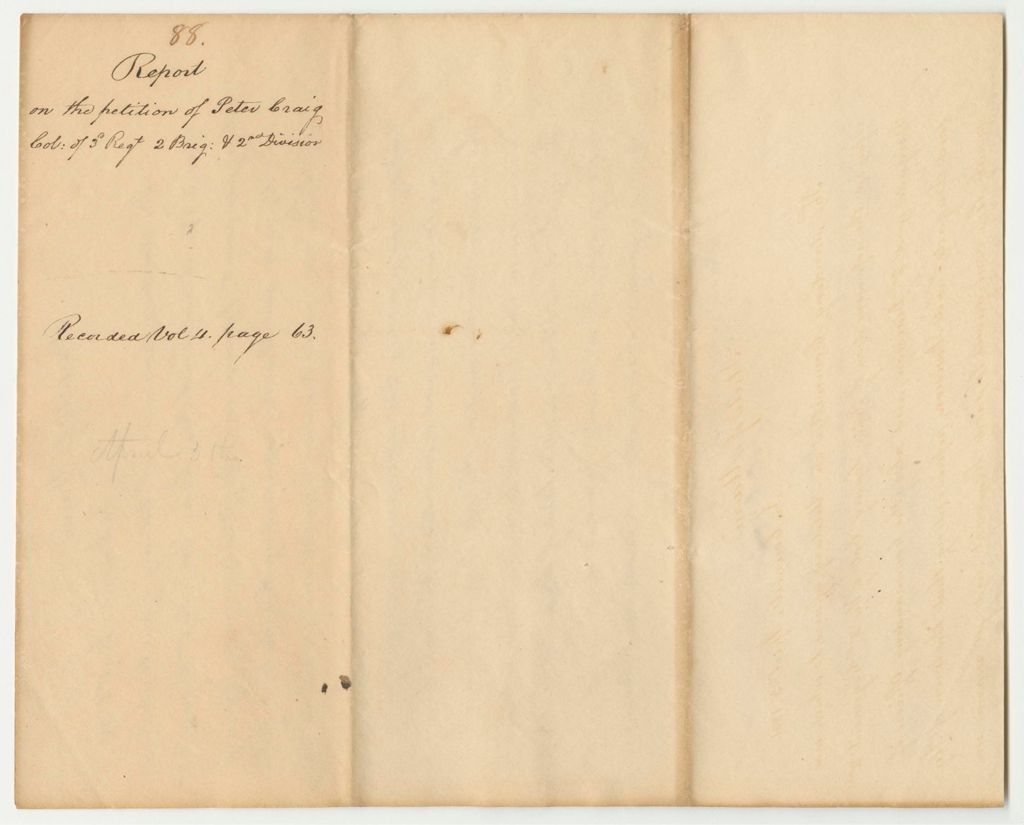 88.
Report
on the petition of Peter Craig
Col: of 3d Regt 2 Brig: & 2nd Division
Recorded Vol 4. page 63.
April